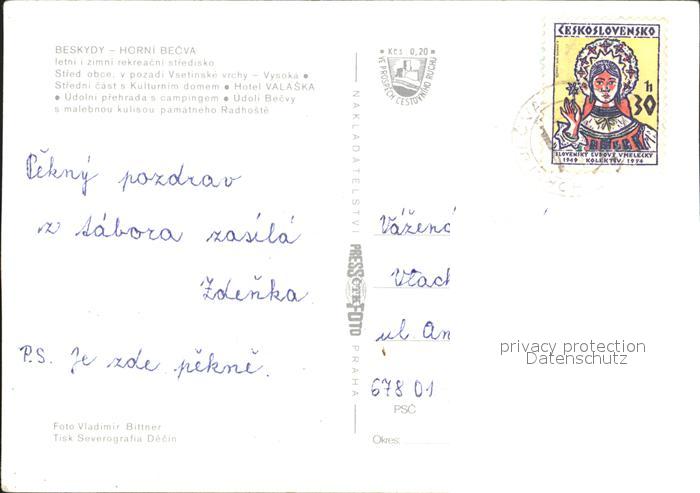 BESKYDY – HORNÍ BEČVA
letní i zimní rekreační středisko
Střed obce, v pozadí Vsetínské vrchy – Vysoká ●
Střední část s Kulturním domem ● Hotel VALAŠKA
● Údolní přehrada s campingem ● Údolí Bečvy
s malebnou kulisou památného Radhoště
Pěkný pozdrav
z tábora zasílá
Zdeňka
P.S. Je zde pěkně.
Foto Vladimír Bittner
Tisk Severografia Děčín
NAKLADATELSTVÍ PRESSFOTO PRAHA
ČTK
Kčs 0,20
VE PROSPĚCH CESTOVNÍHO RUCHU
ČESKOSLOVENSKO
30 h
SLOVENSKÝ ĽUDOVÝ UMELECKÝ
1949 KOLEKTÍV 1974
Vážen
Vlach
ul. An
678 01
PSČ
Okres:
privacy protection
Datenschutz